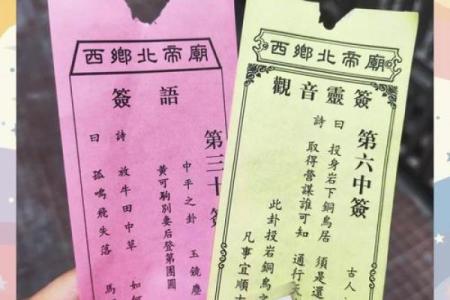 西鄉北帝廟
簽語
第三十簽
中平之卦 玉鏡塵
黄可駒別妻后登第團圓
詩 放牛田中草 如何
曰 孤鳴飛失落 馬
西鄉北帝廟
觀音靈簽
第六中簽
古人
曰 投身岩下銅鳥居 須是還
詩 取得營謀誰可知 通行天
此卦投岩銅鳥之
凡事宜順